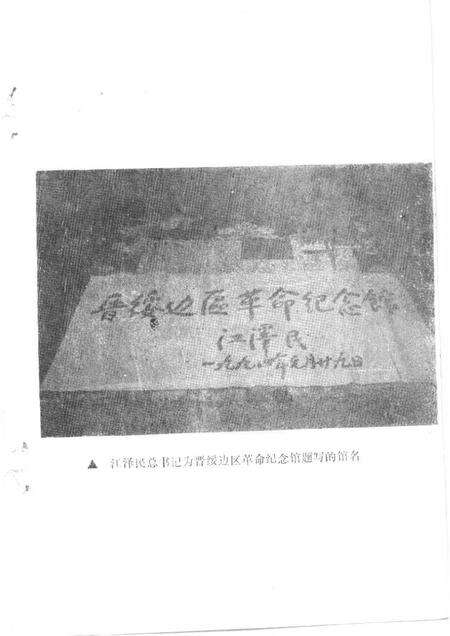 晋绥边区革命纪念馆
江泽民
▲ 江泽民总书记为晋绥边区革命纪念馆题写的馆名